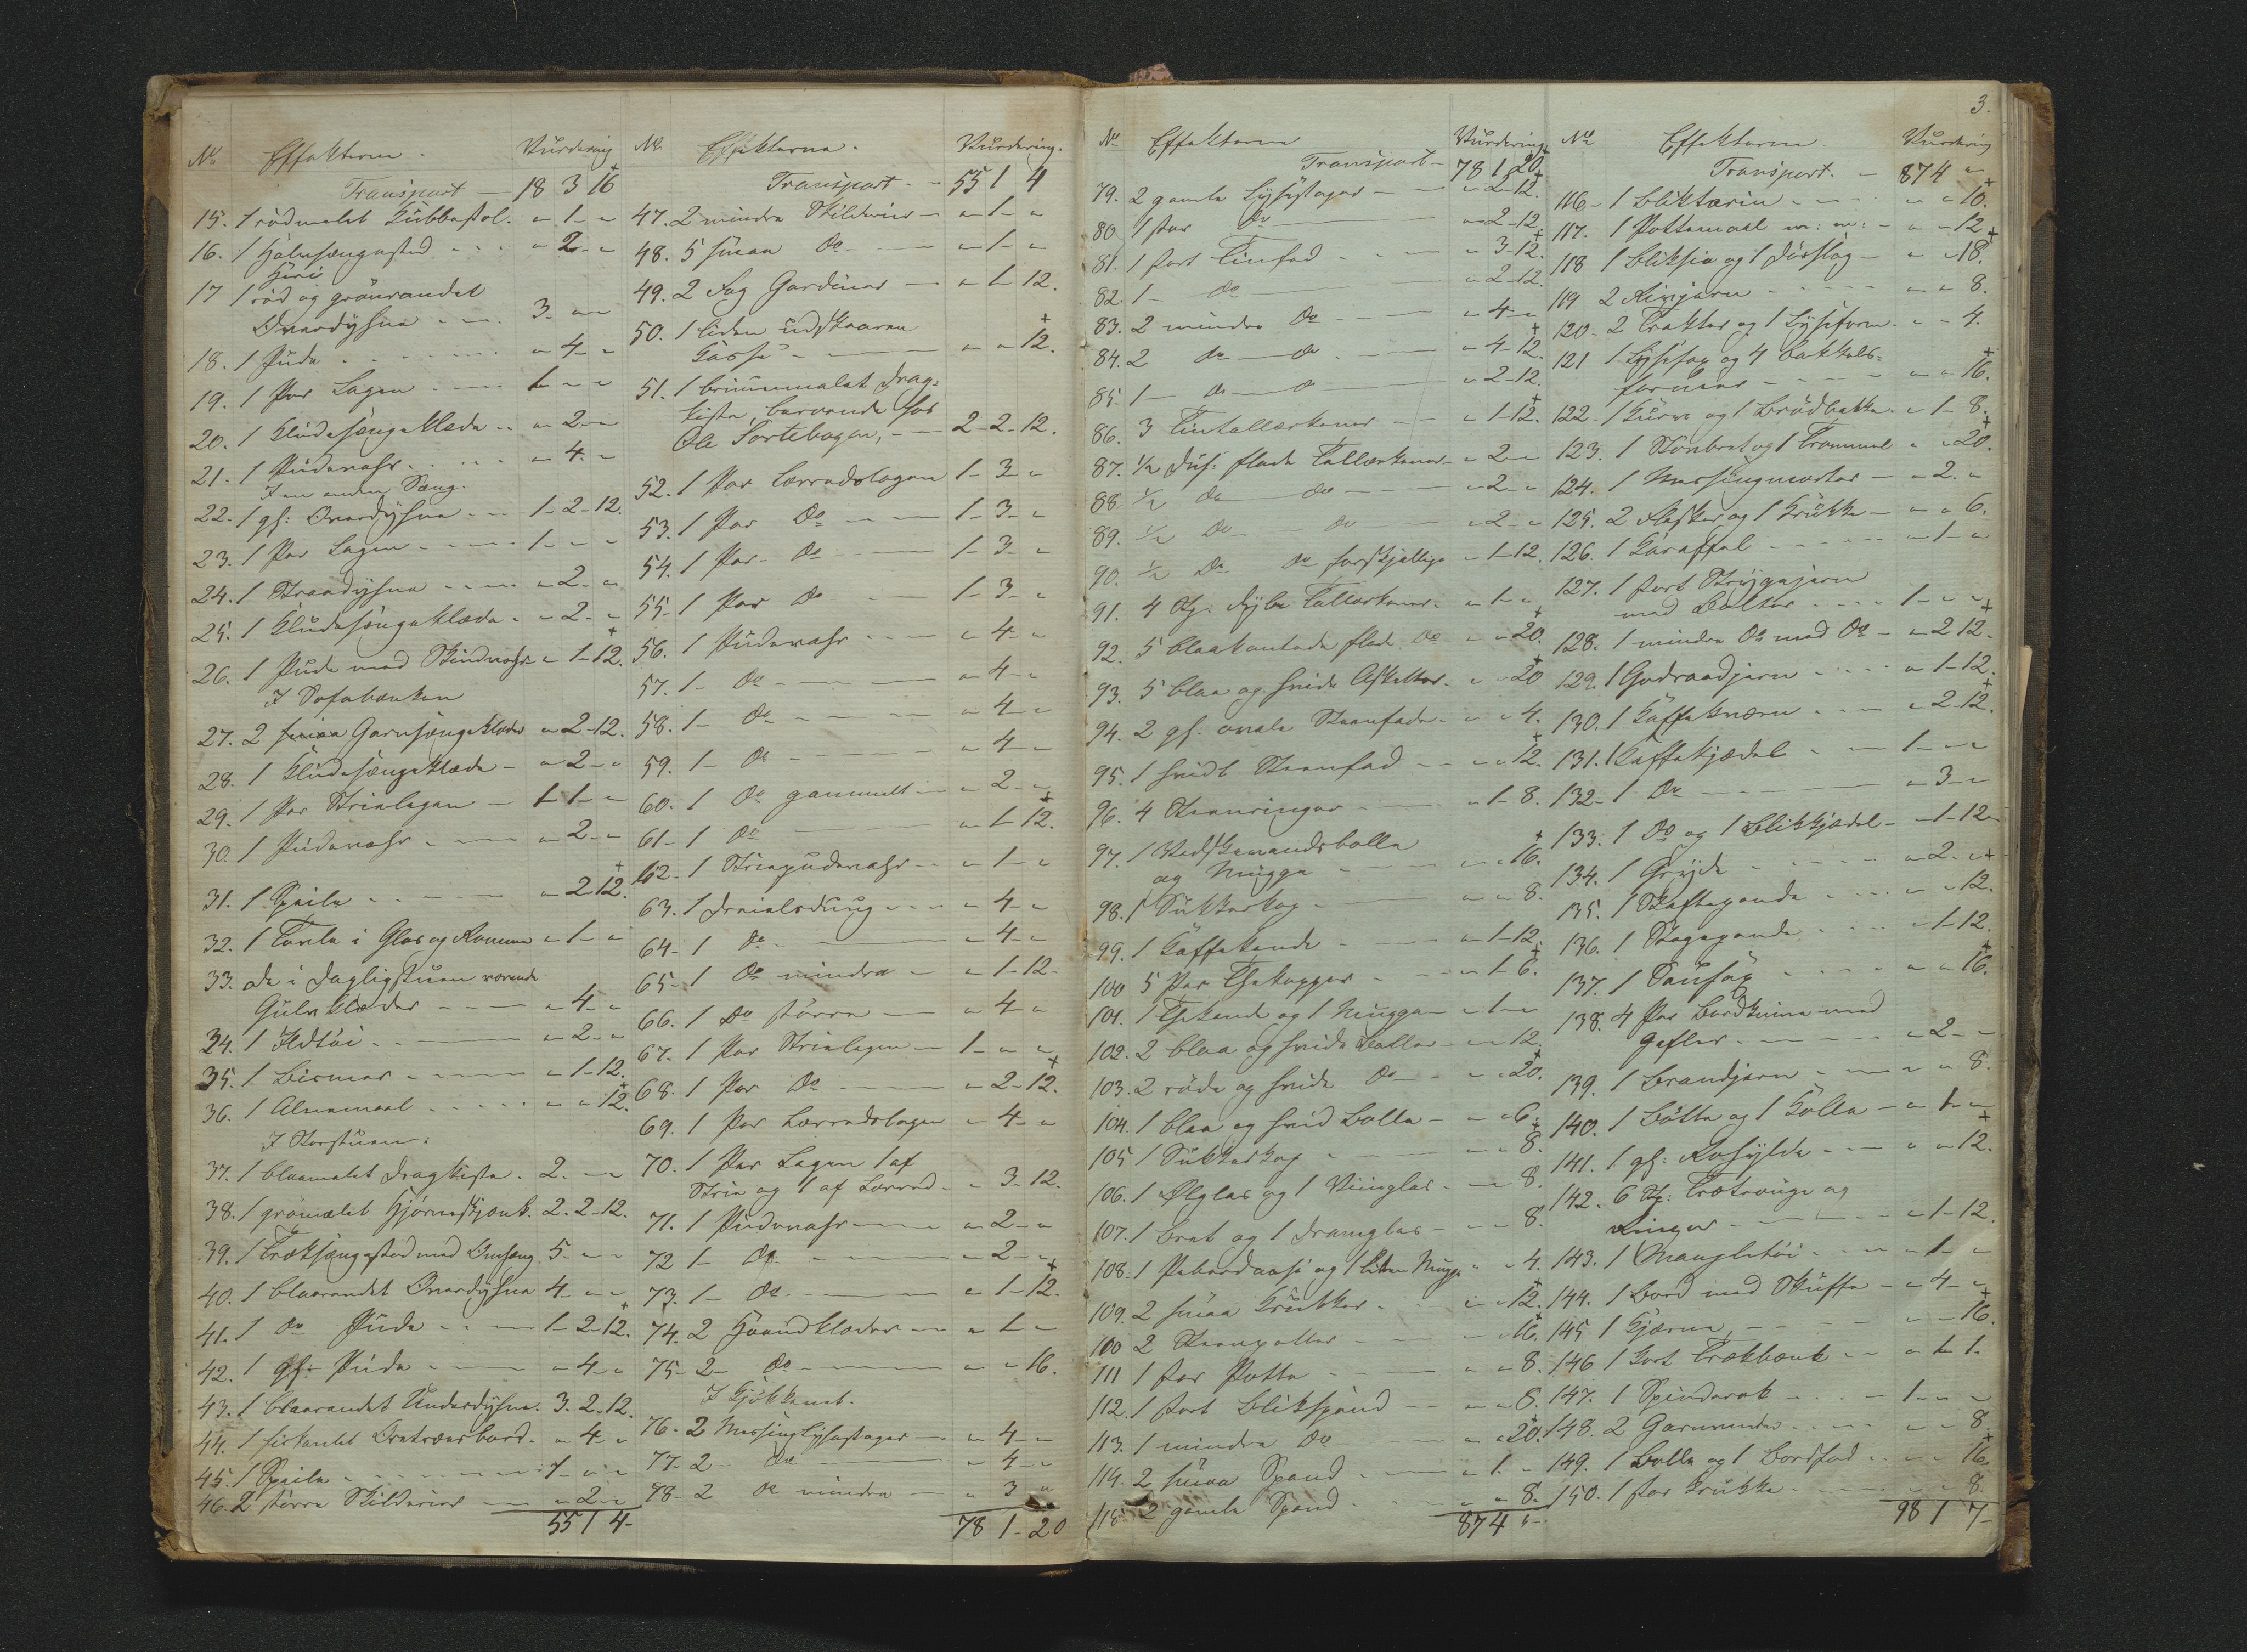 No Effekterne. Vurdering
Transport — 18 3 16
15. 1 rødmalet Kubbestol. " 1 - "
16. 1 Halmsængested . . . " 2 - "
Heri
17 1 rød og grønrandet
Overdyhne . . . . 3. " "
18. 1 Pude . . . . . . . " 4 - "
19. 1 Par Lagen . . . . 1 - " "
20. 1 Kludesængeklæde . . " 2 - "
21. 1 Pudevahr . . . . . " 4 - "
I en anden Seng.
22. 1 gl: Overdyhne . . . 1 - 2 - 12.
23. 1 Par Lagen . . . . 1 - " "
24. 1 Straadyhne . . . . " 2 - "
25. 1 Kludesængeklæde . . " 2 - "
26. 1 Pude med Skindvahr " 1 - 12.
I Sofabænken
27. 2 smaa Garnsængeklæder " 2 - 12.
28. 1 Kludesængeklæde - " 2 - "
29. 1 Par Strielagen — 1 - 1 - "
30. 1 Pudevahr . . . . " 2 - "
31. 1 Speile . . . . . . " 2 - 12.
32. 1 Tavle i Glas og Ramme " 1 - "
33. de i Dagligstuen værende
Gulvklæder — " 4 - "
34. 1 Ildtøi . . . " 2 - "
35. 1 Bismer . . . . " 1 - 12.
36. 1 Alenmaal . . . . . " " 12.
I Storstuen:
37. 1 blaamalet Dragkiste . 2. - "
38. 1 grømalet Hjørneskjænk. 2. 2 - 12.
39. 1 Træksængested med Omhæng 5 - " "
40. 1 blaarandet Overdyhne 4 - " "
41. 1 do Pude . . . 1 - 2 - 12.
42. 1 gl: Pude . . . " 4 - "
43. 1 blaarandet Underdyhne. 3. 2 - 12.
44. 1 firkantet Oretræesbord . " 4 - "
45. 1 Speile . . . . . . 1 - " "
46. 2 større Skilderier — " 2 - "
55 1 4 -
No Effekterne. Vurdering.
Transport - - 55 1 4
47. 2 mindre Skilderier — " 1 - "
48. 5 smaa do - — " 1 - "
49. 2 Fag Gardiner — " 1 - 12.
50. 1 liden udskaaren
Kasse - — " " 12.
51. 1 brunmalet Drag-
kiste, beroende hos
Ole Sortebogen, - — 2 - 2 - 12.
52. 1 Par Lærredslagen 1 - 3 - "
53. 1 Par do - — 1 - 3 - "
54. 1 Par do - — 1 - 3 - "
55. 1 Par do - — 1 - 3 - "
56. 1 Pudevahr . . . " 4 - "
57. 1 - do - — " 4 - "
58. 1 - do - — " 4 - "
59. 1 - do - — " 4 - "
60. 1 do gammelt — " 2 - "
61 - 1 do — " 1 - 12.
62 - 1 Striepudevahr . . " 1 - "
63. 1 Dreielsdung . . . " 4 - "
64 - 1 do . — " 4 - "
65 - 1 do mindre — " 1 - 12 -
66. 1 do større — " 4 - "
67. 1 Par Strielagen — 1 - " "
68. 1 Par do — " 2 - 12.
69. 1 Par Lærredslagen " 4 - "
70. 1 Par Lagen 1 af
Strie og 1 af Lærred . " 3 - 12.
71. 1 Pudevahr — " 2 - "
72 1 - do - — " 2 - "
73. 1 - do - — " 1 - 12.
74. 2 Haandklæder — " 1 - "
75 - 2 - do . — " " 16.
I Kjøkkenet.
76. 2 Messinglysestager — " 4 - "
77 - 2 - do — " 4 - "
78 - 2 do mindre — " 3 "
78 1 - 20
3.
No Effekterne Vurdering
Transport — 78 1 20
79. 2 gamle Lysestager — " 2 - 12.
80. 1 stor do — " 2 - 12
81. 1 stort Tinfad . . . — " 3 - 12.
82. 1 - do — " 2 - 12.
83. 2 mindre do — " 4 - "
84. 2 do — do . — " 4 - 12.
85. 1 - do — do — " 2 - 12.
86. 3 Tintallerkener — " 1 - 12.
87. 1/2 Dus: flade Tallerkener - " 2 - "
88. 1/2 do do — " 2 - "
89. 1/2 do — do — " 2 - "
90. 1/2 do do forskjellige " 1 - 12.
91. 4 Stk: dybe Tallerkener . " 1 - "
92. 5 blaakantede flade do " " 20.
93. 5 blaa og hvide Asketter . " " 20
94. 2 gl. ovale Steenfade . " " 4.
95. 1 hvidt Steenfad — " " 12.
96. 4 Steenringer — " 1 - 8.
97. 1 Vadskevandsbolle
og Mugge — " " 16.
98. 1 Sukkerkop . — " " 8.
99. 1 Kaffekande — " 1 - 12.
100 5 Par Thekopper — " 1 - 6.
101. 1 Thekande og 1 Mugge — " 1 - "
102. 2 blaa og hvide Boller — " " 12.
103. 2 røde og hvide do — " " 20.
104. 1 blaa og hvid Bolle — " " 6.
105 1 Sukkerkop — " " 8.
106. 1 Ølglas og 1 Viinglas . — " 8.
107. 1 Bret og 1 Dramglas — " " 8.
108. 1 Peberdaase og 1 liden Mugge " " 4.
109. 2 smaa Krukker . . — " " 12.
100 2 Steenpotter — " 16.
111 1 stor Potte — " " 8.
112. 1 stort Blikspand — " " 8.
113. 1 mindre do — " " 20.
114. 2 smaa Spand . — " 1. "
115. 2 gamle Spand . — " " 8.
87 4 " -
No Effekterne Vurdering
Transport. - 87 4 "
116 - 1 Bliktærin . . . . " " 10.
117. 1 Pottemaal m: m: — " " 12
118 1 Bliksie og 1 Dørslag — " " 18.
119 2 Rivjern . . . . . " " 8.
120 - 2 Trakter og 1 Lyseform . " " 4.
121 1 Lysesax og 4 Bakkels-
former — " " 16.
122. 1 Kurv og 1 Brødbakke . " 1 - 8.
123. 1 Steenbret og 1 Trommel " " 20.
124. 1 Messingmorter — " 2. "
125. 2 Flasker og 1 Krukke — " " 6.
126. 1 Karaffel . . . . . " 1 - "
127. 1 stort Strygejern
med Bolter . . . . 1 - " "
128. 1 mindre do med do — " 2 12.
129. 1 Goderaadjern . . . . " 1 - 12.
130. 1 Kaffekværn . . — " 2 - 12.
131. 1 Kaffekjædel . — 1 - " "
132 - 1 do — " 3 - "
133. 1 do og 1 Blikkjædel — " 1 - 12 -
134. 1 Gryde . . . . . " 2 - "
135. 1 Skaftepande . . . . " " 12.
136. 1 Stegepande . . . " 1 - 12.
137. 1 Sausax . . . . " " 16.
138. 4 Par Bordknive med
Gafler . — " 2 - -
139. 1 Brandjern — " " 8.
140. 1 Bøtte og 1 Kolle — " 1 - "
141. 1 gl: Rosylde — " " 12.
142. 6 Stk: Trætrauge og
Ringer — " 1 - 12.
143. 1 Mangletøi . . — " 1 - "
144. 1 Bord med Skuffe — " 4 - "
145 1 Kjærne, — " " 16.
146 1 Kort Trækbænk — " 1 - 1.
147. 1 Spinderok . . — 1 - " "
148. 2 Garnvinder . . . . " " 8.
149. 1 Bolle og 1 Bordfad . . " " 16.
150. 1 stor Krukke . . . . " " 8.
98 1 7 -